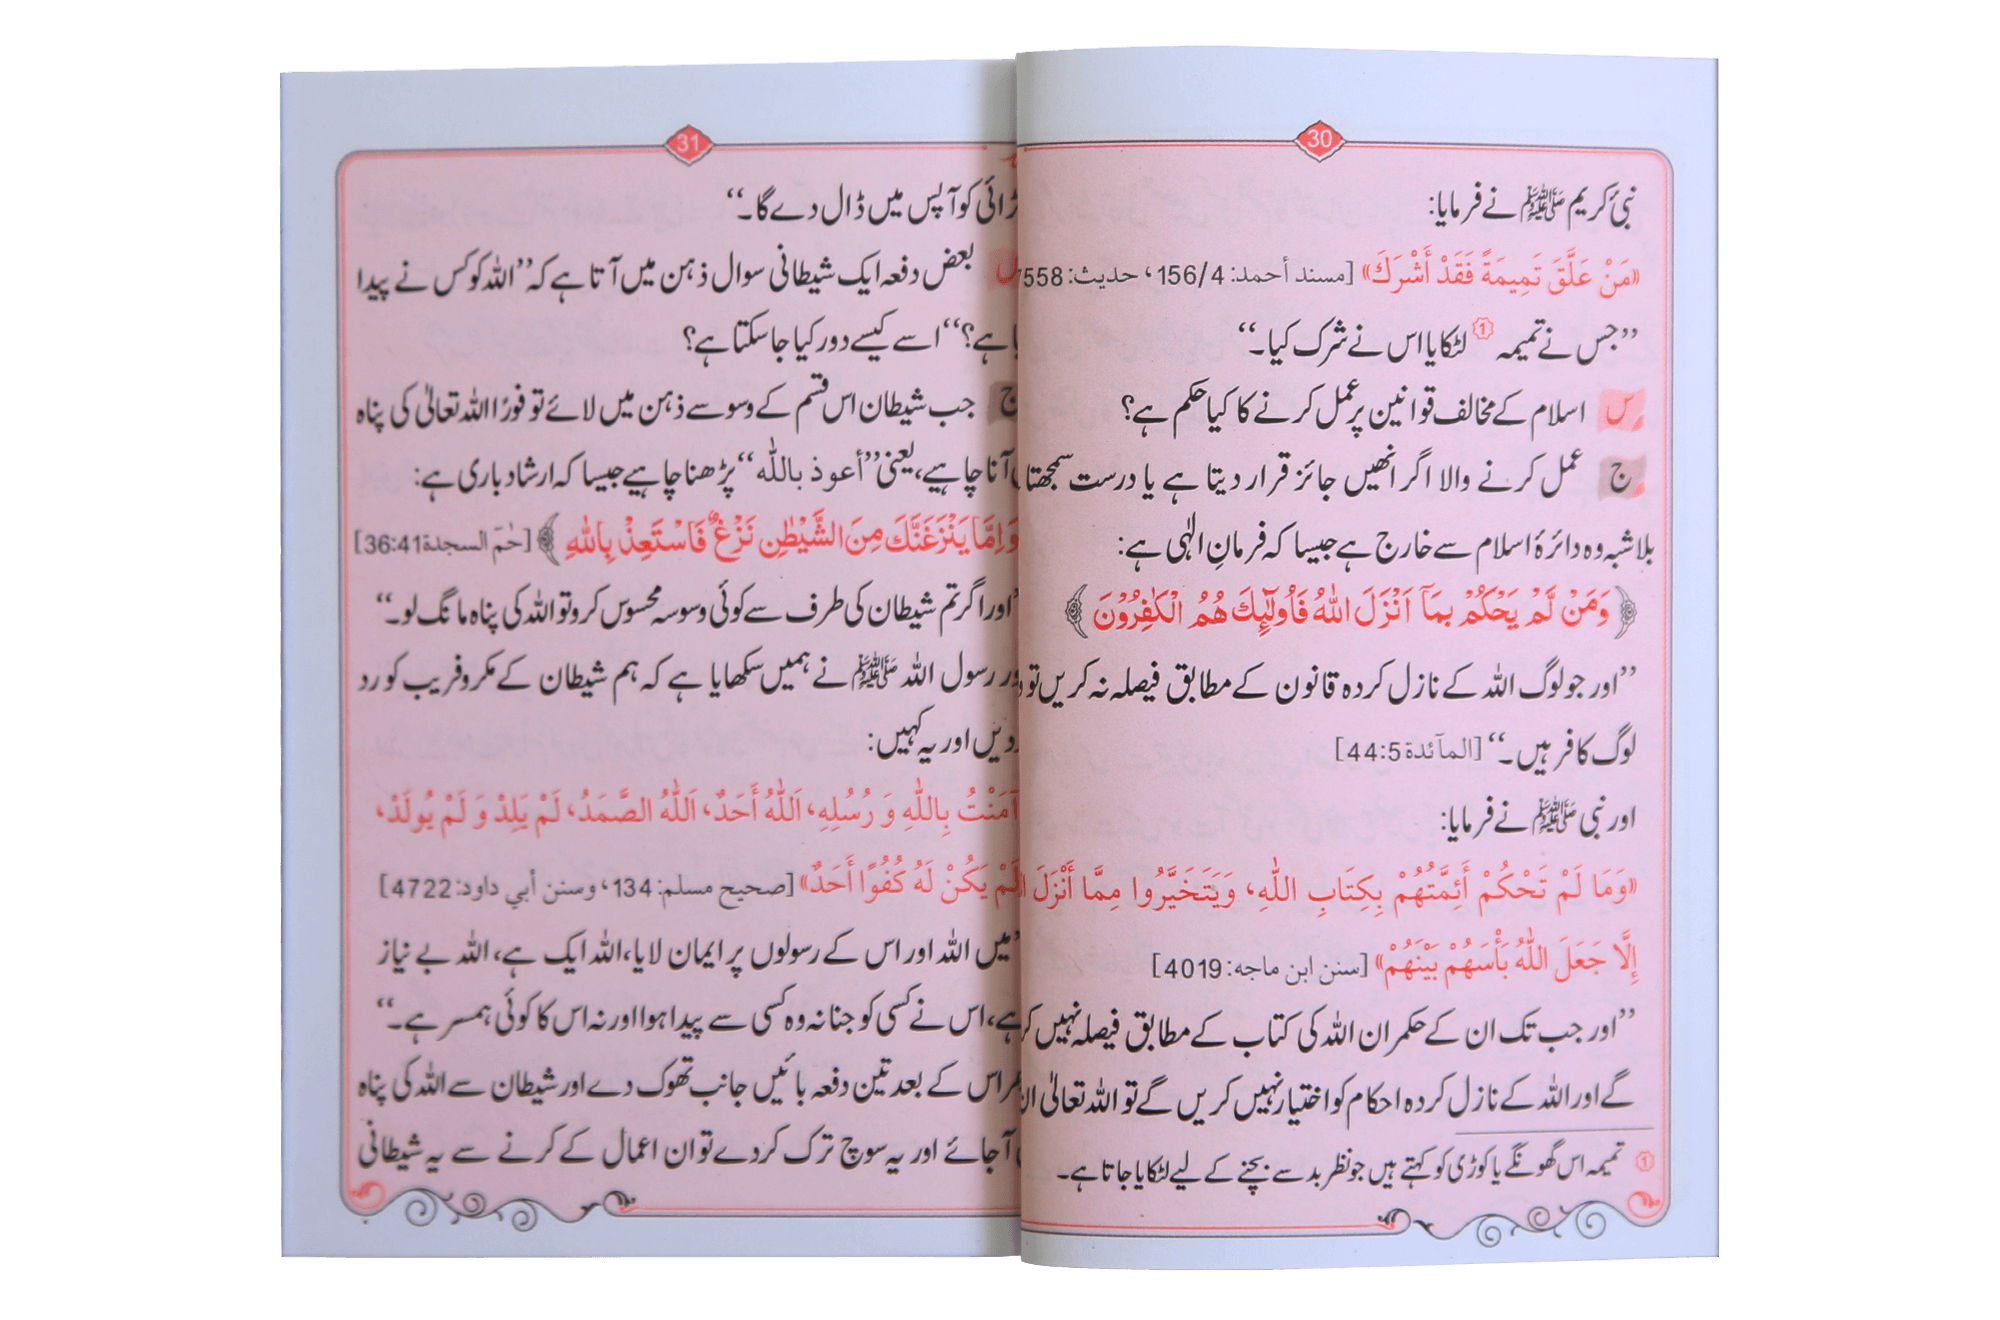 30
نبیٔ کریم ﷺ نے فرمایا:
«مَنْ عَلَّقَ تَمِيمَةً فَقَدْ أَشْرَكَ» [مسند أحمد: 156/4، حدیث: 7558
’’جس نے تمیمہ ① لٹکایا اس نے شرک کیا۔‘‘
س اسلام کے مخالف قوانین پر عمل کرنے کا کیا حکم ہے؟
ج عمل کرنے والا اگر انھیں جائز قرار دیتا ہے یا درست سمجھتا
بلاشبہ وہ دائرۂ اسلام سے خارج ہے جیسا کہ فرمانِ الٰہی ہے:
﴿وَمَنْ لَّمْ يَحْكُمْ بِمَآ اَنْزَلَ اللّٰهُ فَاُولٰٓئِكَ هُمُ الْكٰفِرُوْنَ﴾
’’اور جو لوگ اللہ کے نازل کردہ قانون کے مطابق فیصلہ نہ کریں تو
لوگ کافر ہیں۔‘‘ [المآئدة 44:5]
اور نبی ﷺ نے فرمایا:
«وَمَا لَمْ تَحْكُمْ أَئِمَّتُهُمْ بِكِتَابِ اللّٰهِ، وَيَتَخَيَّرُوا مِمَّا أَنْزَلَ
إِلَّا جَعَلَ اللّٰهُ بَأْسَهُمْ بَيْنَهُمْ» [سنن ابن ماجه: 4019]
’’اور جب تک ان کے حکمران اللہ کی کتاب کے مطابق فیصلہ نہیں
گے اور اللہ کے نازل کردہ احکام کو اختیار نہیں کریں گے تو اللہ تعالیٰ ان
① تمیمہ اس گھونگے یا کوڑی کو کہتے ہیں جو نظر بد سے بچنے کے لیے لٹکایا جاتا ہے۔
31
کو آپس میں ڈال دے گا۔‘‘
س بعض دفعہ ایک شیطانی سوال ذہن میں آتا ہے کہ ’’اللہ کو کس نے پیدا
ہے؟‘‘ اسے کیسے دور کیا جا سکتا ہے؟
ج جب شیطان اس قسم کے وسوسے ذہن میں لائے تو فورًا اللہ تعالیٰ کی پناہ
آنا چاہیے، یعنی ’’أعوذ باللّٰه‘‘ پڑھنا چاہیے جیسا کہ ارشاد باری ہے:
وَاِمَّا يَنْزَغَنَّكَ مِنَ الشَّيْطٰنِ نَزْغٌ فَاسْتَعِذْ بِاللّٰهِ﴾ [حٰمٓ السجدة 36:41]
’’اور اگر تم شیطان کی طرف سے کوئی وسوسہ محسوس کرو تو اللہ کی پناہ مانگ لو۔‘‘
رسول اللہ ﷺ نے ہمیں سکھایا ہے کہ ہم شیطان کے مکر و فریب کو رد
دیں اور یہ کہیں:
آمَنْتُ بِاللّٰهِ وَ رُسُلِهِ، اَللّٰهُ أَحَدٌ، اَللّٰهُ الصَّمَدُ، لَمْ يَلِدْ وَ لَمْ يُولَدْ،
لَمْ يَكُنْ لَهُ كُفُوًا أَحَدٌ» [صحيح مسلم: 134، وسنن أبي داود: 4722]
’’میں اللہ اور اس کے رسولوں پر ایمان لایا، اللہ ایک ہے، اللہ بے نیاز
ہے، اس نے کسی کو جنا نہ وہ کسی سے پیدا ہوا اور نہ اس کا کوئی ہمسر ہے۔‘‘
اس کے بعد تین دفعہ بائیں جانب تھوک دے اور شیطان سے اللہ کی پناہ
آجائے اور یہ سوچ ترک کر دے تو ان اعمال کے کرنے سے یہ شیطانی